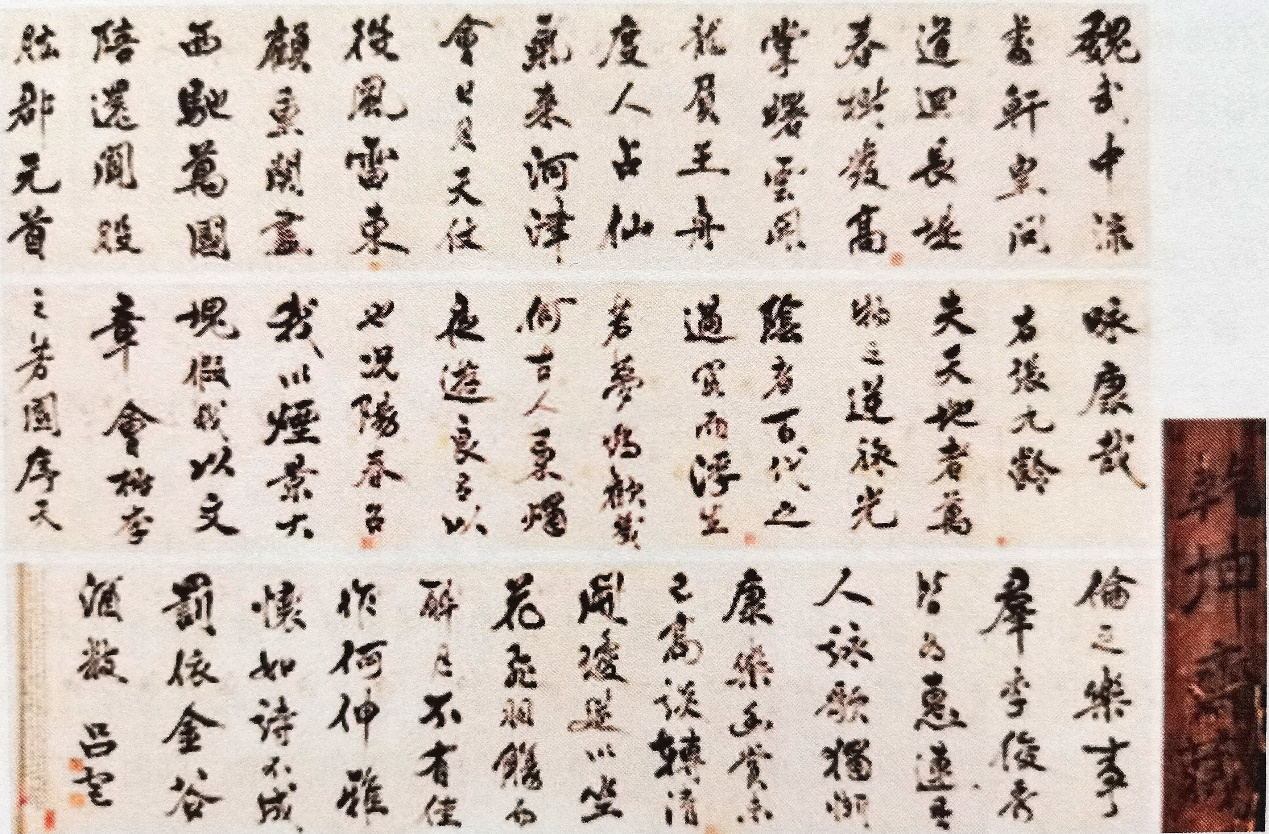 魏武中流
處軒皇問
道迴長堤
春樹發高
掌曙雲開
龍負王舟
度人占仙
氣來河津
會日月天仗
從風雷東
顧重關盡
西馳萬國
陪還聞股
肱郡元首
咏康哉
右張九齡
夫天地者萬
物之逆旅光
陰者百代之
過客而浮生
若夢為歡幾
何古人秉燭
夜遊良有以
也況陽春召
我以煙景大
塊假我以文
章會桃李
之芳園序天
倫之樂事
羣季俊秀
皆為惠連吾
人詠歌獨慚
康樂幽賞未
已高談轉清
開瓊筵以坐
花飛羽觴而
醉月不有佳
作何伸雅
懷如詩不成
罰依金谷
酒數 呂
乾坤齋藏